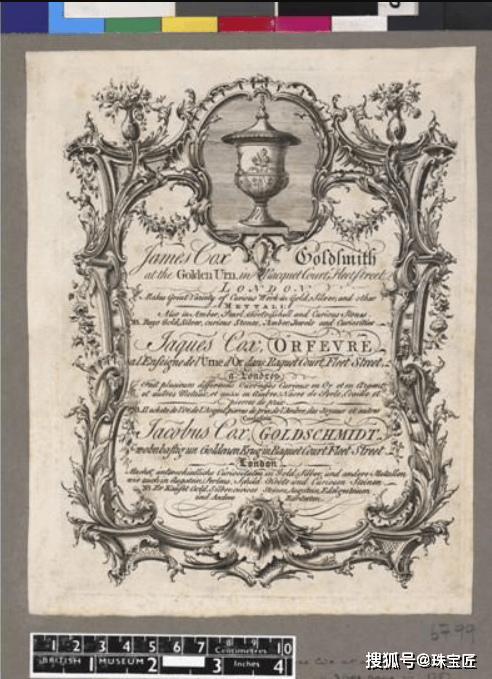 James Cox Goldsmith
at the Golden Urn, in Racquet Court, Fleetstreet
LONDON
Makes Great Variety of Curious Work in Gold, Silver, and other
METTALS
Also in Amber, Pearl, Tortoiseshell and Curious Stones
Buys Gold, Silver, curious Stones, Amber, Jewels and Curiosities
Jaques Cox, ORFEVRE
a l'Enseigne de l'Urne d'Or dans Raquet Court, Fleet Street,
a Londres
Fait plusieurs differents Ouvrages Curieux en Or et en Argent
et autres Metaux, et aussi en Ambre, Nacre de Perle, Ecaille et
pierres de prix
Il achete de l'Or de l'Argent, de l'Ambre, des Joyaux et autres
Jacobus Cox, GOLDSCHMIDT
wohnhafftig zur Goldenen Krug in Raquet Court Fleet Street
London
Macht unterschiedliche in Gold, Silber und andere Metallen
wie auch in und Curiosen Steinen
Er Kaufft Gold, Silber, curiose Steine, Edelgesteinen
und Andere Raritaten
6799
1 2 3 4 5 6 7 8 9 10
Centimetres
BRITISH MUSEUM
1 2 3 Inches 4
搜狐号@珠宝匠